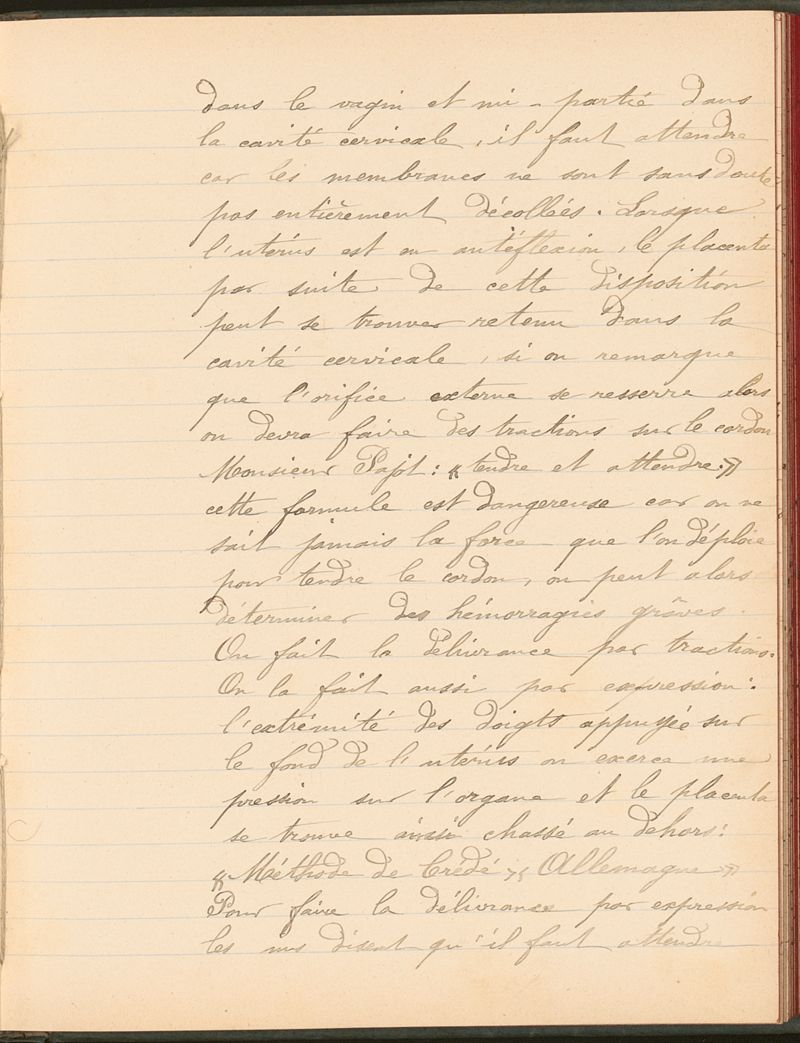 dans le vagin et mi-partie dans
la cavité cervicale, il faut attendre
car les membranes ne sont sans doute
pas entièrement décollées. Lorsque
l'utérus est en antéflexion, le placenta
par suite de cette disposition
peut se trouver retenu dans la
cavité cervicale, si on remarque
que l'orifice externe se resserre alors
on devra faire des tractions sur le cordon
Monsieur Pajot: « tendre et attendre. »
cette formule est dangereuse car on ne
sait jamais la force que l'on déploie
pour tendre le cordon, on peut alors
déterminer des hémorragies grâves.
On fait la délivrance par tractions.
On la fait aussi par expression:
l'extrémité des doigts appuyée sur
le fond de l'utérus on exerce une
pression sur l'organe et le placenta
se trouve ainsi chassé au dehors:
« Méthode de Crédé » « Allemagne »
Pour faire la délivrance par expression
les uns disent qu'il faut attendre